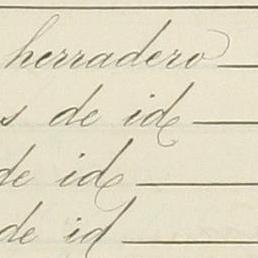 herradero
s de id
de id
de id